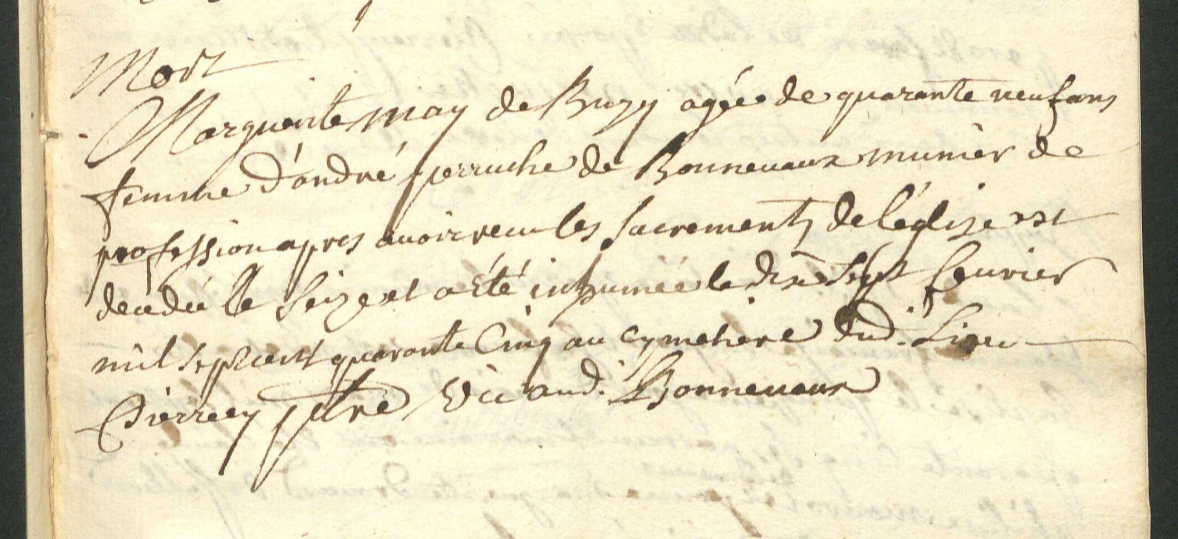 Mort
Marguerite may de Buzy agée de quarante neuf ans
femme d'andré perruche de Bonnevaux munier de
profession apres avoir receu les sacrements de l'église est
decedée le seize et a été inhumée le dix sept fevrier
mil sept cent quarante Cinq au cymetiere dud. Lieu
Pierrey ptre vic aud. Bonnevaux